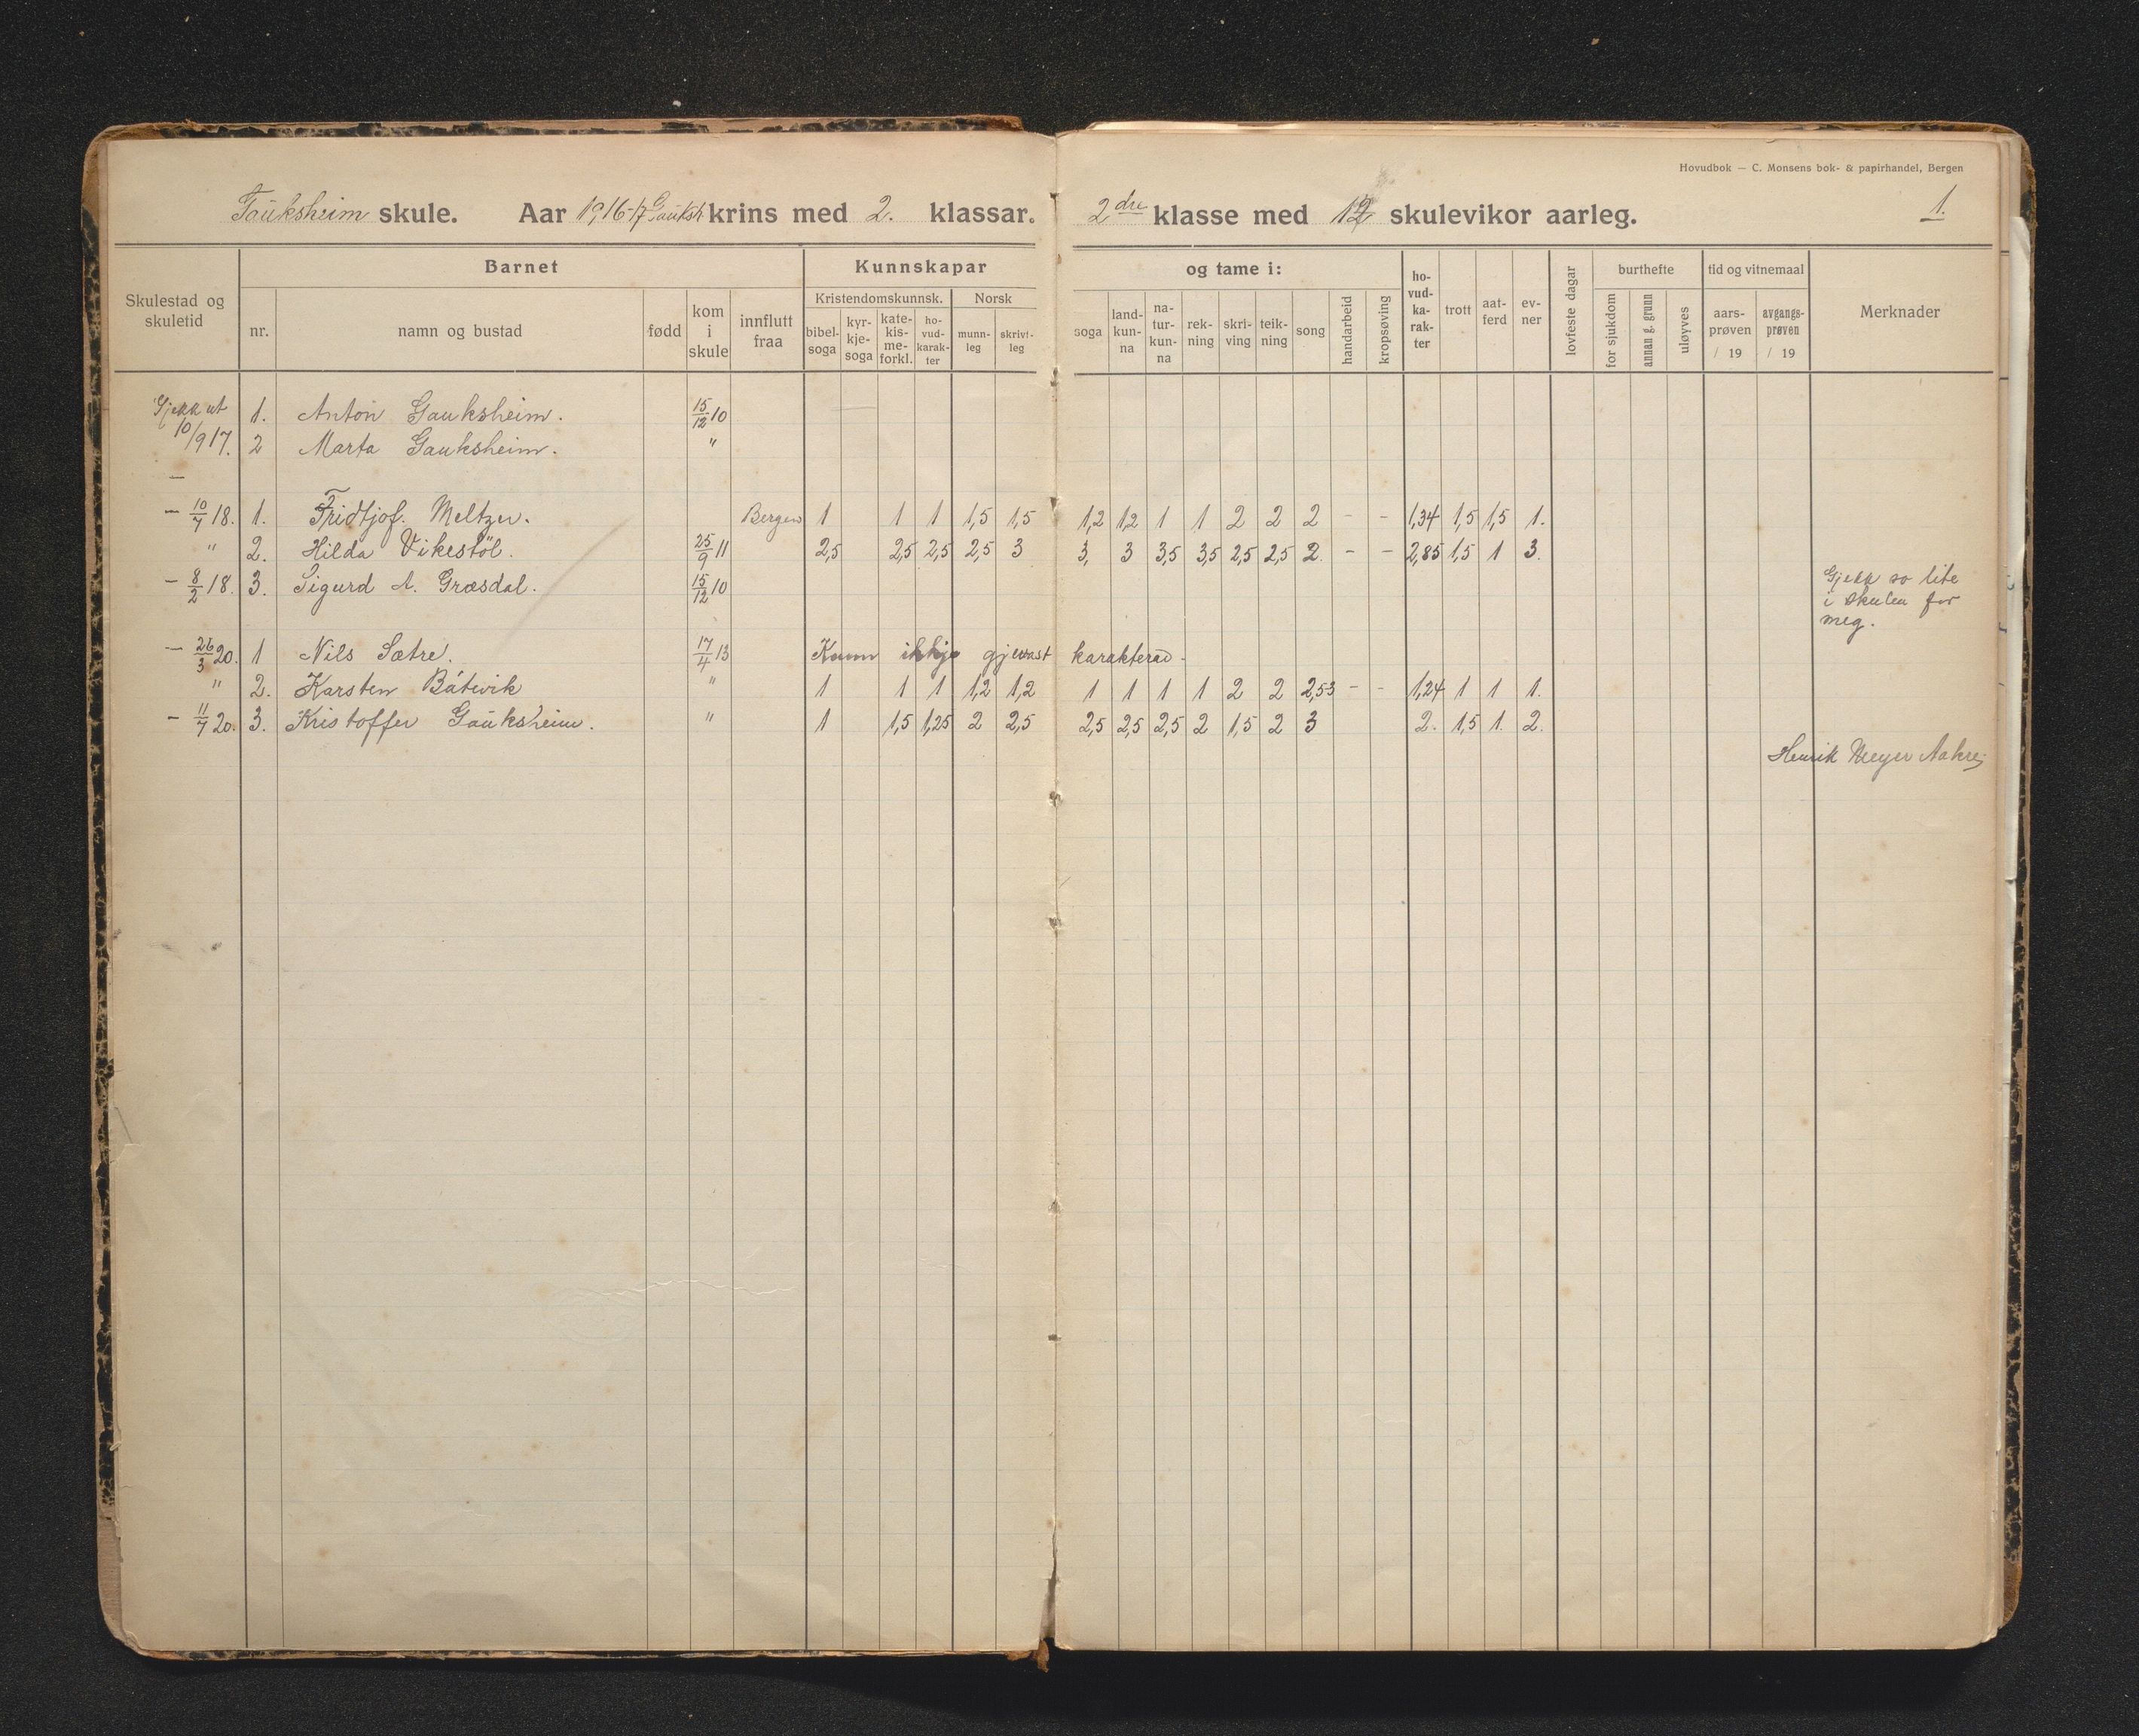 Hovudbok — C. Monsens bok- & papirhandel, Bergen
Gauksheim skule. Aar 1916-17 Gauksh krins med 2. klassar. 2dre klasse med 12 skulevikor aarleg. 1.
Skulestad og skuletid
Barnet
nr. namn og bustad fødd kom i skule innflutt fraa
Kunnskapar og tame i:
Kristendomskunnsk. Norsk
bibel-soga kyr-kje-soga kate-kis-me-forkl. ho-vud-karak-ter munn-leg skrivt-leg
soga land-kun-na na-tur-kun-na rek-ning skri-ving teik-ning song handarbeid kropsøving
ho-vud-ka-rak-ter trott aat-ferd ev-ner
lovfeste dagar burthefte for sjukdom annan g. grunn uløyves
tid og vitnemaal aars-prøven / 19 avgangs-prøven / 19
Merknader
Gjekk ut 10/9 17. 1. Anton Gauksheim. 15/12 10
2 Marta Gauksheim. "
—
— 10/7 18. 1. Fridtjof. Meltzer. Bergen 1 1 1 1,5 1,5 1,2 1,2 1 1 2 2 2 - - 1,34 1,5 1,5 1.
" 2. Hilda Vikestöl. 25/9 11 2,5 2,5 2,5 2,5 3 3, 3 3,5 3,5 2,5 2,5 2. - - 2,85 1,5 1 3.
— 8/2 18. 3. Sigurd A. Græsdal. 15/12 10 Gjekk so lite
i skulen for
meg.
— 26/3 20. 1 Nils Sætre. 17/4 13 Kunn ikkje gjevast karakterar -
" 2. Karsten Båtevik " 1 1 1 1,2 1,2 1 1 1 1 2 2 2,53 - - 1,24 1 1 1.
— 11/7 20. 3. Kristoffer Gauksheim. " 1 1,5 1,25 2 2,5 2,5 2,5 2,5 2 1,5 2 3 2. 1,5 1. 2.
Henrik Meyer Aakre